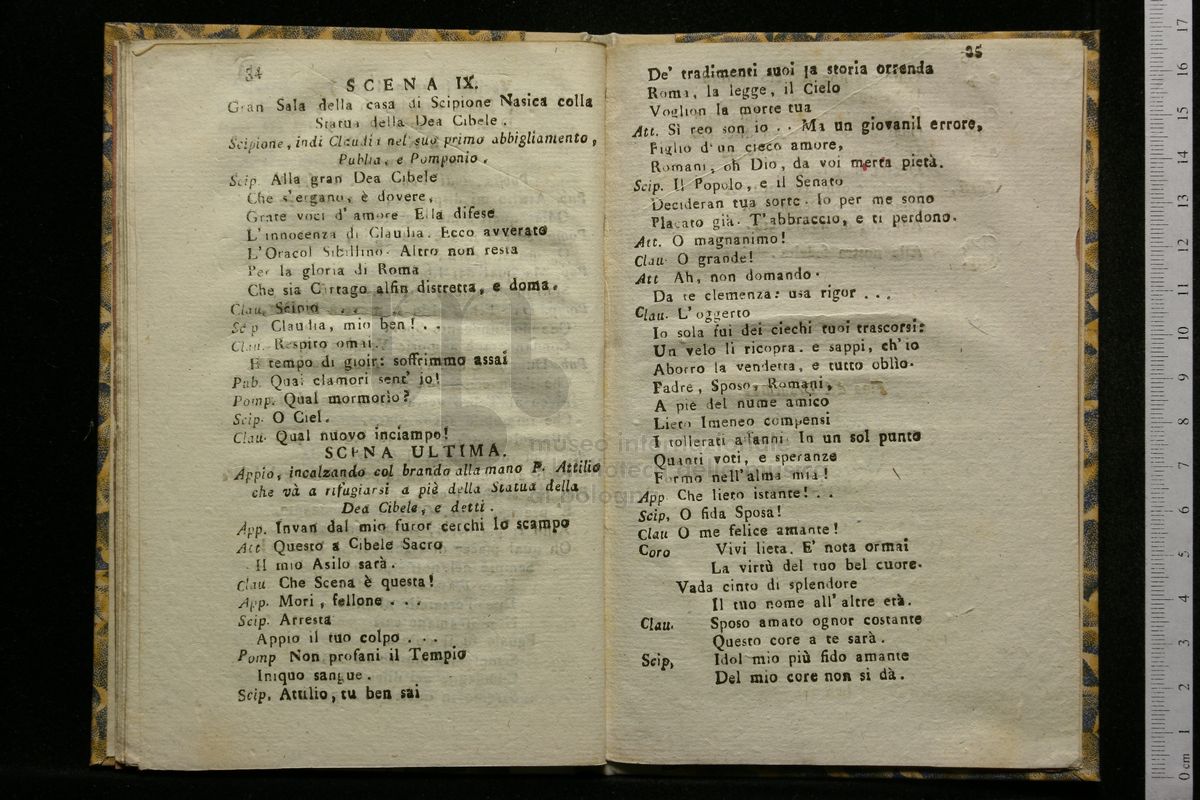 34
SCENA IX.
Gran Sala della casa di Scipione Nasica colla
Statua della Dea Cibele.
Scipione, indi Claudia nel suo primo abbigliamento,
Publia, e Pomponio.
Scip. Alla gran Dea Cibele
Che s'ergano, è dovere,
Grate voci d'amore Ella difese
L'innocenza di Claudia. Ecco avverato
L'Oracol Sibillino. Altro non resta
Per la gloria di Roma
Che sia Cartago alfin distretta, e doma.
Clau. Scipio . . .
Scip Claudia, mio ben! . .
Clau. Respiro omai.
E tempo di gioir: soffrimmo assai
Pub. Quai clamori sent' io!
Pomp. Qual mormorio?
Scip. O Ciel.
Clau. Qual nuovo inciampo!
SCENA ULTIMA.
Appio, incalzando col brando alla mano P. Attilio
che và a rifugiarsi a piè della Statua della
Dea Cibele, e detti.
App. Invan dal mio furor cerchi lo scampo
Att Questo a Cibele Sacro
Il mio Asilo sarà.
Clau Che Scena è questa!
App. Mori, fellone . . .
Scip. Arresta
Appio il tuo colpo . . .
Pomp Non profani il Tempio
Iniquo sangue.
Scip. Attilio, tu ben sai
35
De' tradimenti suoi la storia orrenda
Roma, la legge, il Cielo
Voglion la morte tua
Att. Sì reo son io . . Ma un giovanil errore,
Figlio d'un cieco amore,
Romani, oh Dio, da voi merta pietà.
Scip. Il Popolo, e il Senato
Decideran tua sorte. Io per me sono
Placato già. T'abbraccio, e ti perdono.
Att. O magnanimo!
Clau. O grande!
Att Ah, non domando.
Da te clemenza: usa rigor . . .
Clau. L'oggetto
Io sola fui dei ciechi tuoi trascorsi:
Un velo li ricopra. e sappi, ch'io
Aborro la vendetta, e tutto oblìo.
Padre, Sposo, Romani,
A piè del nume amico
Lieto Imeneo compensi
I tollerati affanni In un sol punto
Quanti voti, e speranze
Formo nell'alma mia!
App. Che lieto istante! . .
Scip, O fida Sposa!
Clau O me felice amante!
Coro Vivi lieta. E' nota ormai
La virtù del tuo bel cuore.
Vada cinto di splendore
Il tuo nome all'altre età.
Clau. Sposo amato ognor costante
Questo core a te sarà.
Scip, Idol mio più fido amante
Del mio core non si dà.